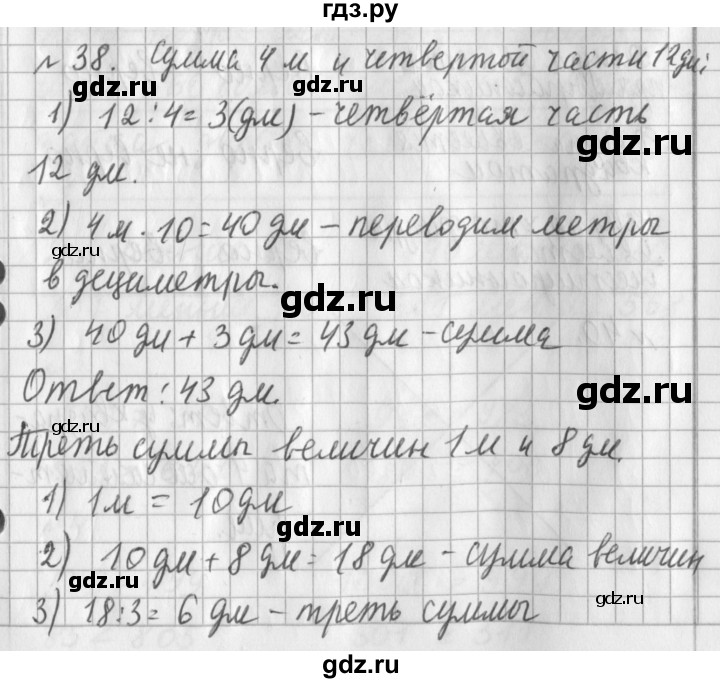 гдз.ру
№ 38. Сумма 4 м и четвертой части 12 дм:
1) 12 : 4 = 3 (дм) – четвёртая часть
gdz.ru
gdz.ru
12 дм.
2) 4 м · 10 = 40 дм – переводим метры
gdz.ru
в дециметры.
gdz.ru
3) 40 дм + 3 дм = 43 дм – сумма
gdz.ru
Ответ: 43 дм.
gdz.ru
gdz.ru
Треть суммы величин 1 м и 8 дм.
1) 1 м = 10 дм
gdz.ru
2) 10 дм + 8 дм = 18 дм – сумма величин
gdz.ru
3) 18 : 3 = 6 дм – треть суммы
gdz.ru
gdz.ru